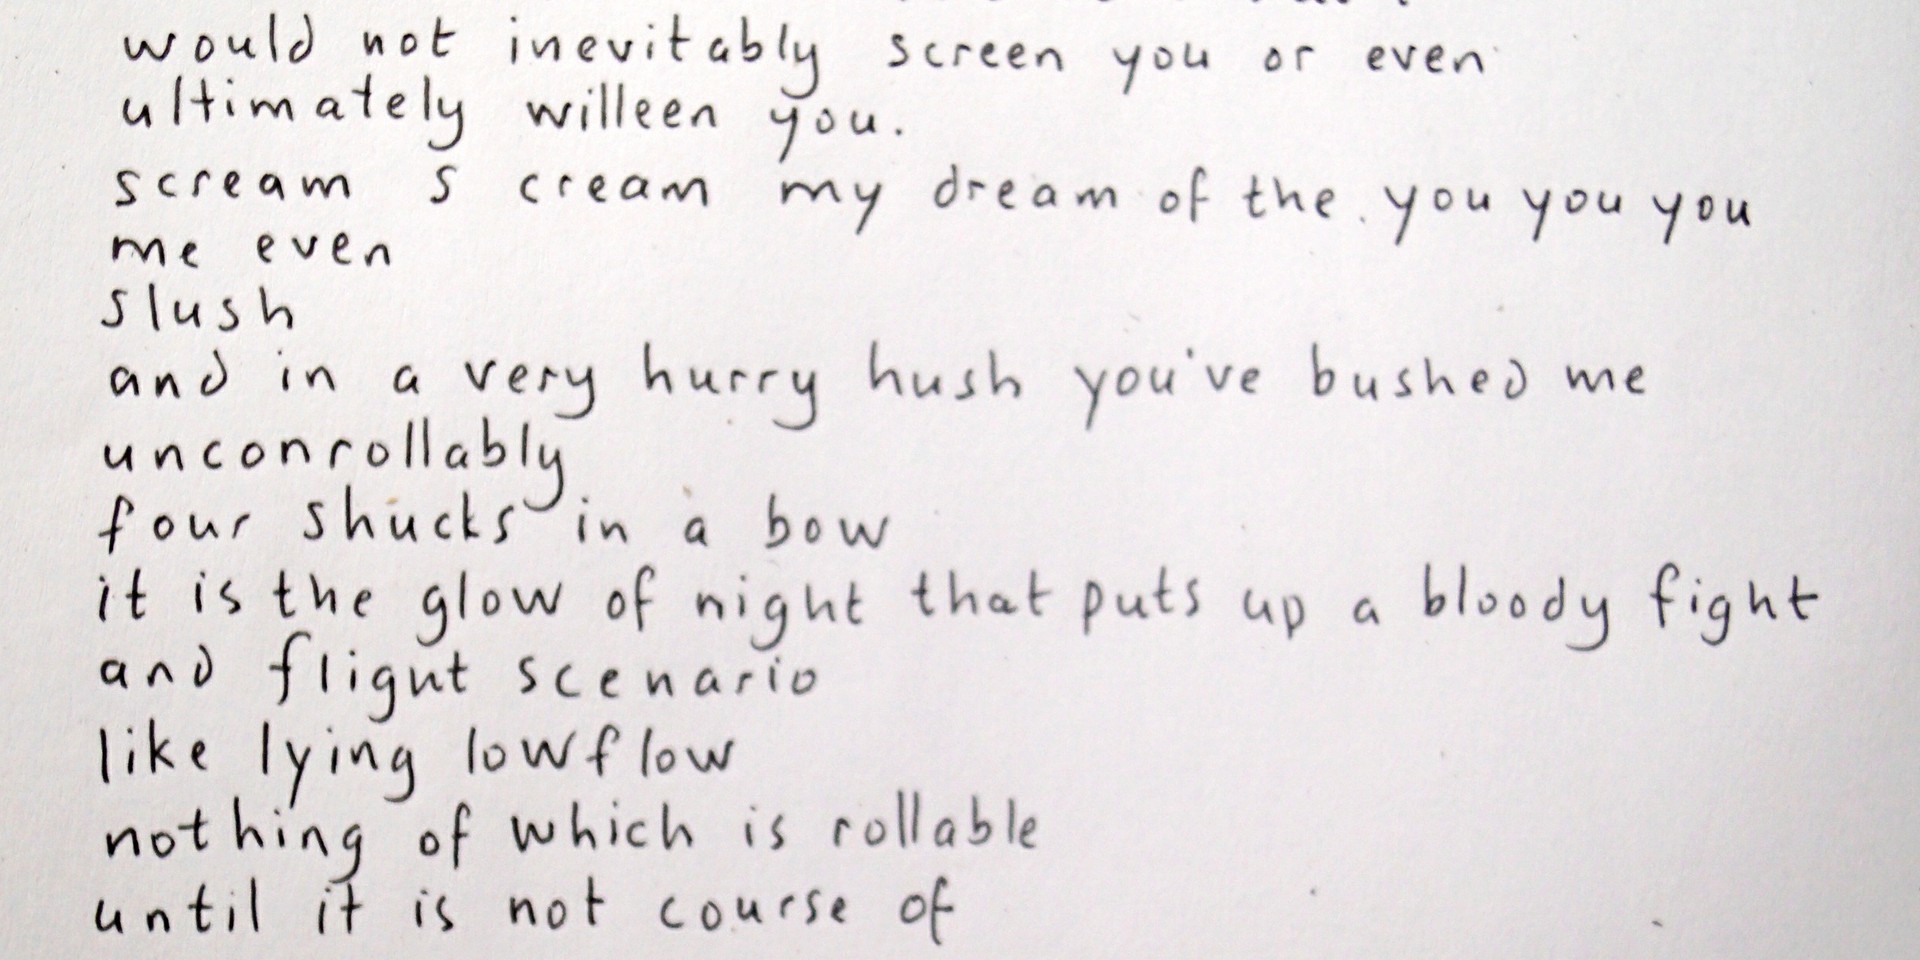 would not inevitably screen you or even
ultimately willeen you.
scream s cream my dream of the you you you
me even
slush
and in a very hurry hush you've bushed me
unconrollably
four shucks in a bow
it is the glow of night that puts up a bloody fight
and flight scenario
like lying lowflow
nothing of which is rollable
until it is not course of